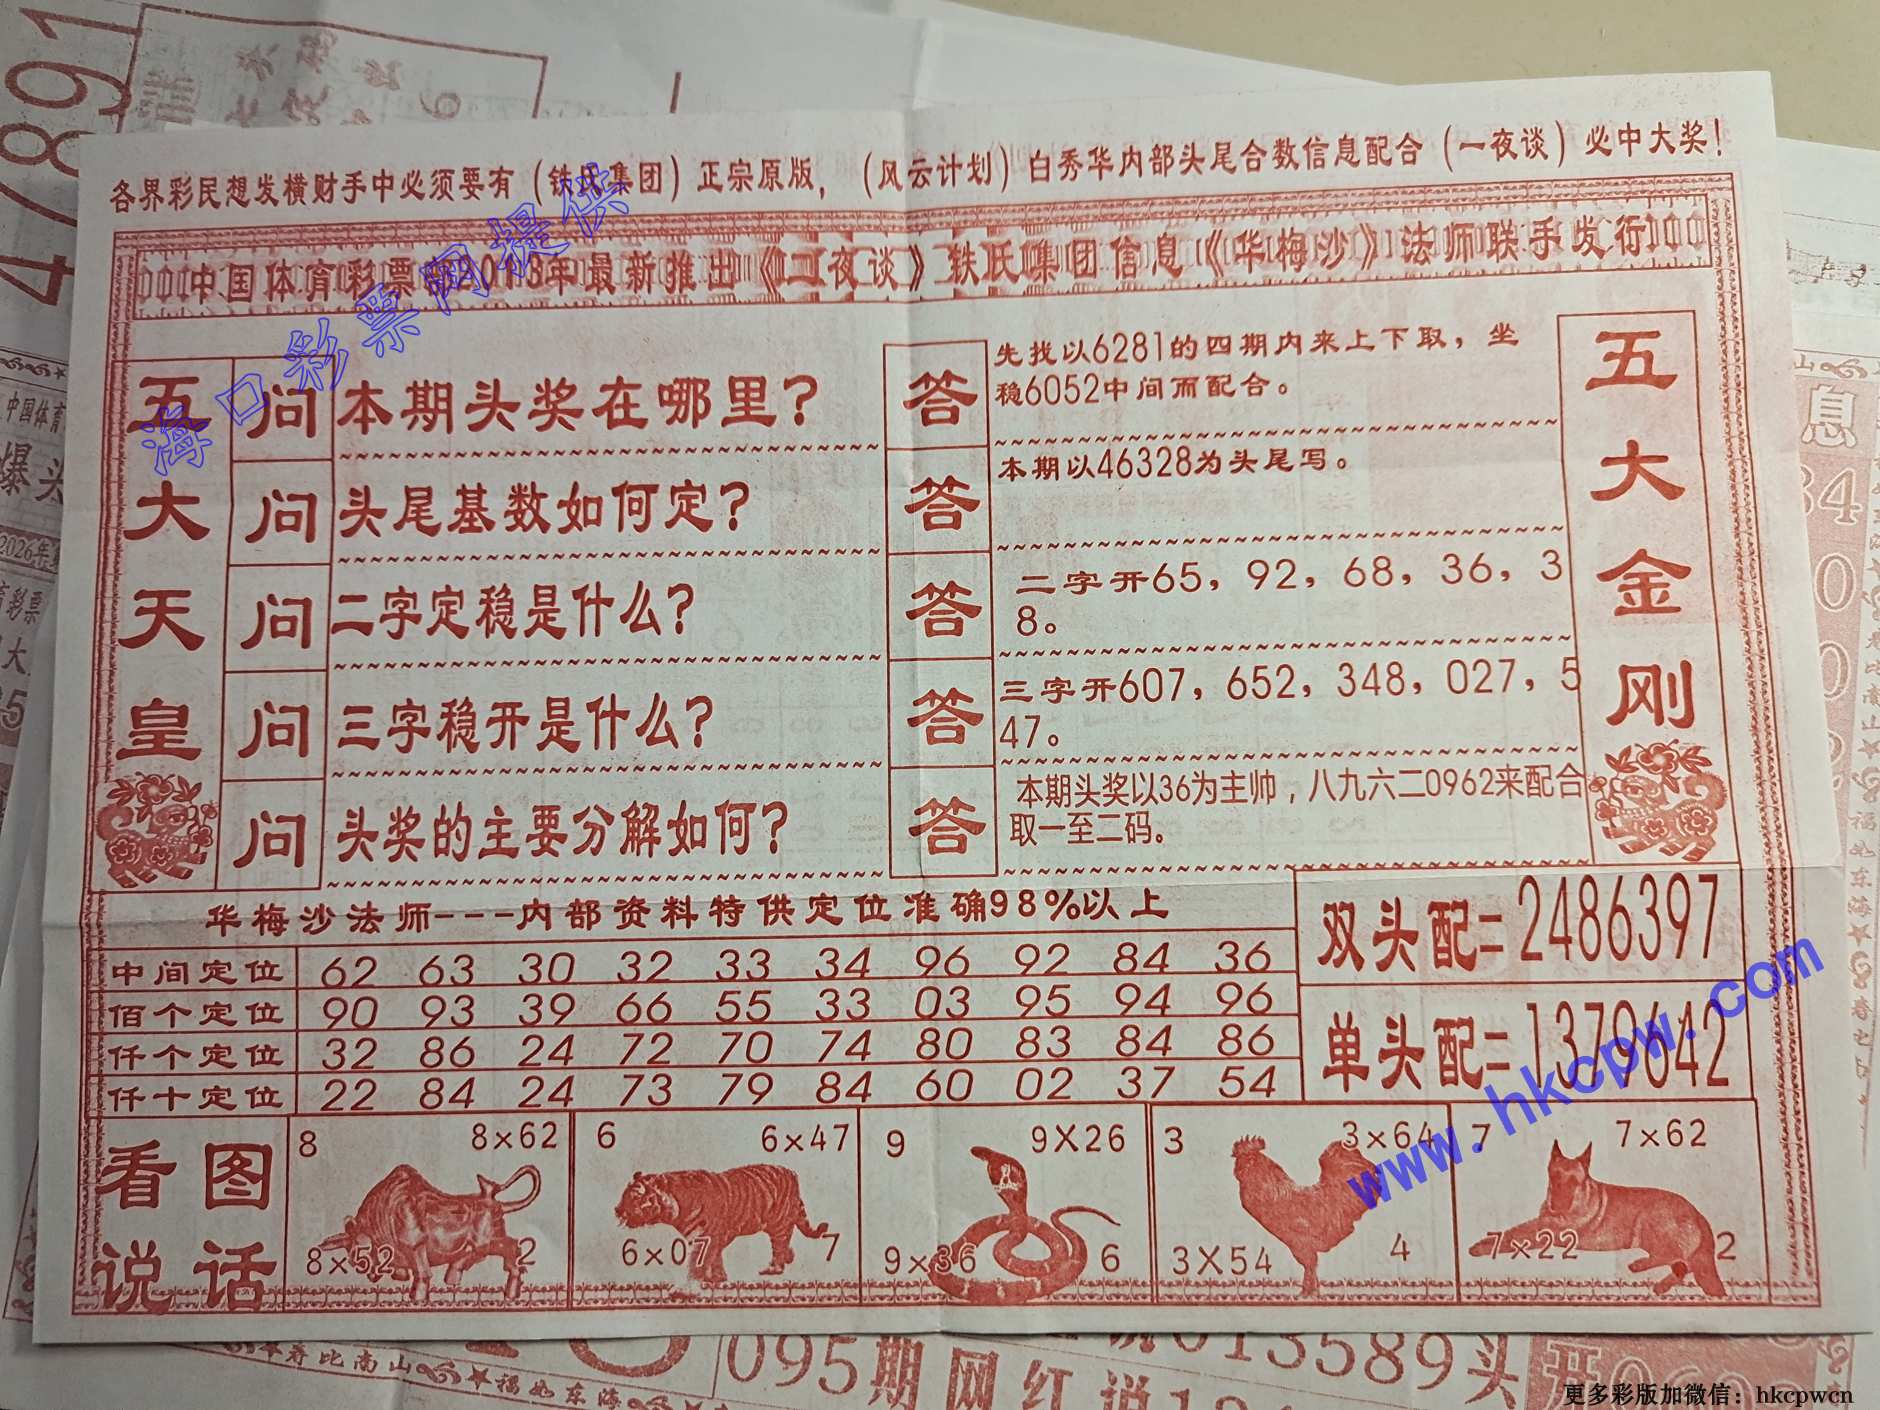 各界彩民想发横财手中必须要有（铁氏集团）正宗原版，（风云计划）白秀华内部头尾合数信息配合（一夜谈）必中大奖！
中国体育彩票 2018年最新推出《一夜谈》铁氏集团信息《华梅沙》法师联手发行
海口彩票网提供
五大天皇
问 本期头奖在哪里？
答 先找以6281的四期内来上下取，坐
稳6052中间而配合。
问 头尾基数如何定？
答 本期以46328为头尾写。
问 二字定稳是什么？
答 二字开65，92，68，36，3
8。
问 三字稳开是什么？
答 三字开607，652，348，027，5
47。
问 头奖的主要分解如何？
答 本期头奖以36为主帅，八九六二0962来配合
取一至二码。
五大金刚
华梅沙法师---内部资料特供定位准确98%以上
中间定位 62 63 30 32 33 34 96 92 84 36
佰个定位 90 93 39 66 55 33 03 95 94 96
仟个定位 32 86 24 72 70 74 80 83 84 86
仟十定位 22 84 24 73 79 84 60 02 37 54
双头配=2486397
单头配=1379642
www.hkcpw.com
看图
说话
8 8×62
8×52 2
6 6×47
6×07 7
9 9X26
9×36 6
3 3×64
3X54 4
7 7×62
7×22 2
4/891
中国体育
爆头
2026年
息
34
寿比南山
福如东海
095期网红说
013589头
更多彩版加微信：hkcpwcn